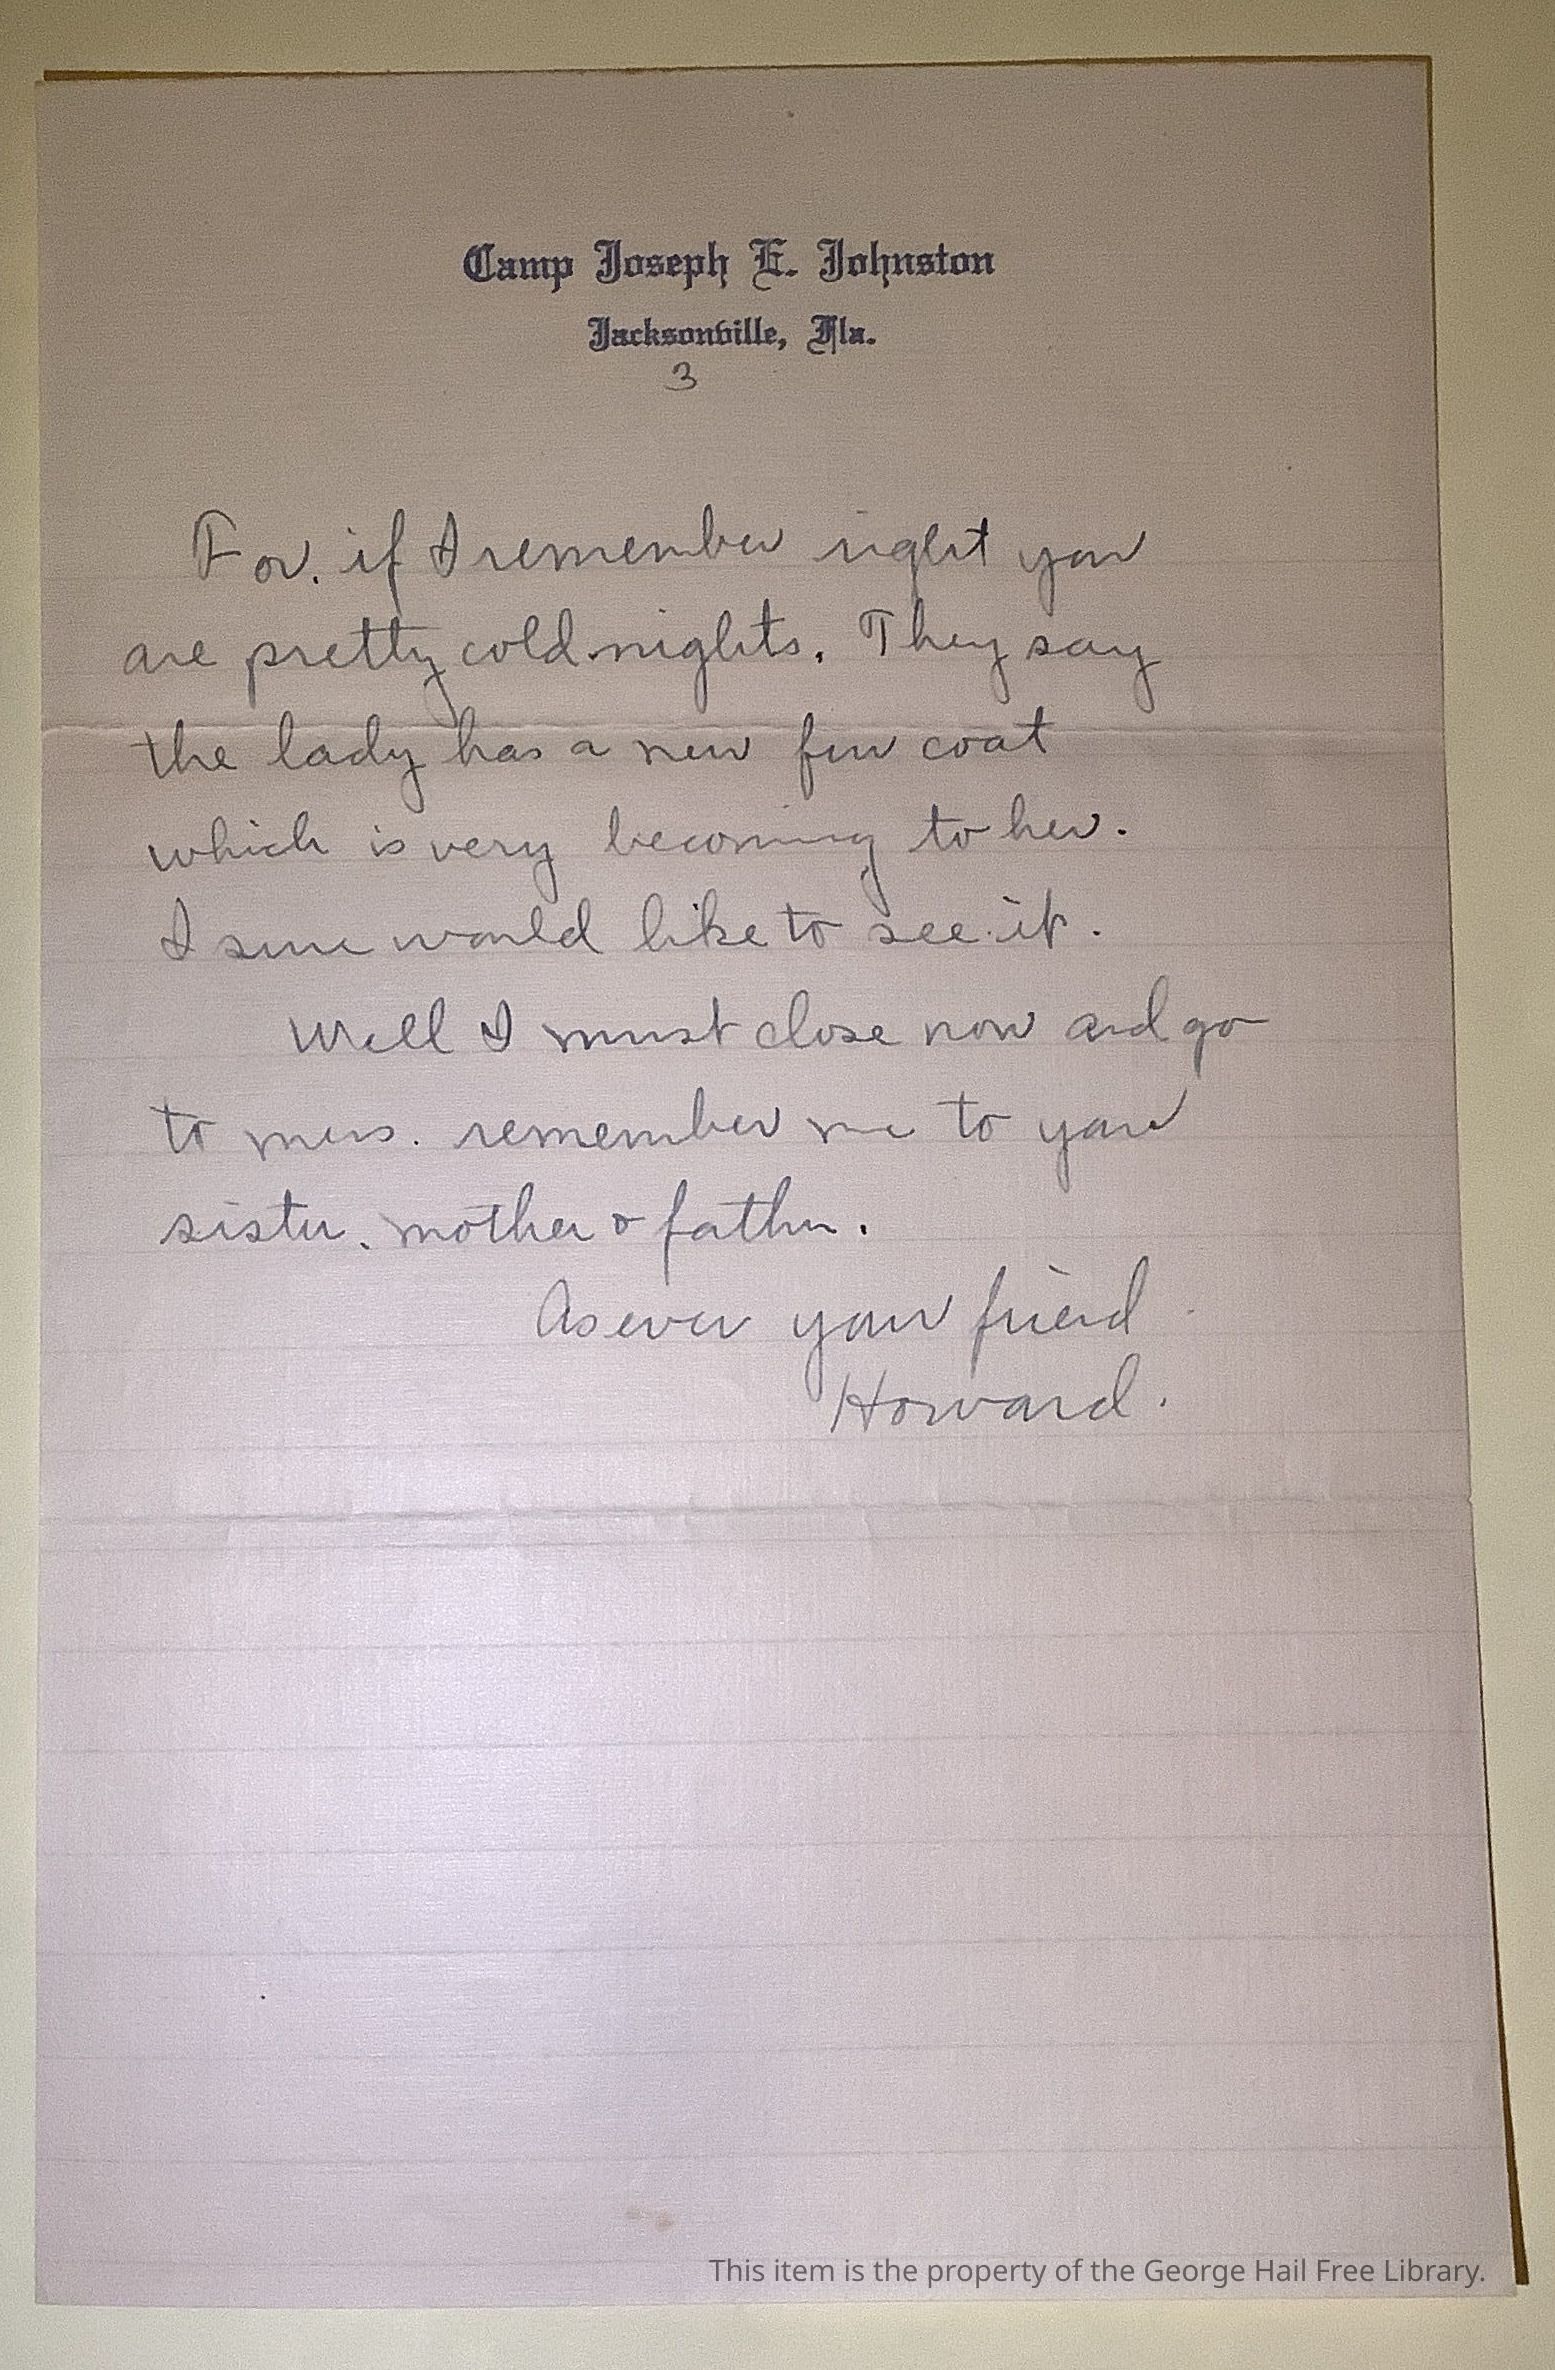 Camp Joseph E. Johnston
Jacksonville, Fla.
3
For. if I remember right you
are pretty cold nights. They say
the lady has a new fur coat
which is very becoming to her.
I sure would like to see it.
Well I must close now and go
to mess. remember me to your
sister. mother & father.
As ever your friend
Howard.
This item is the property of the George Hail Free Library.